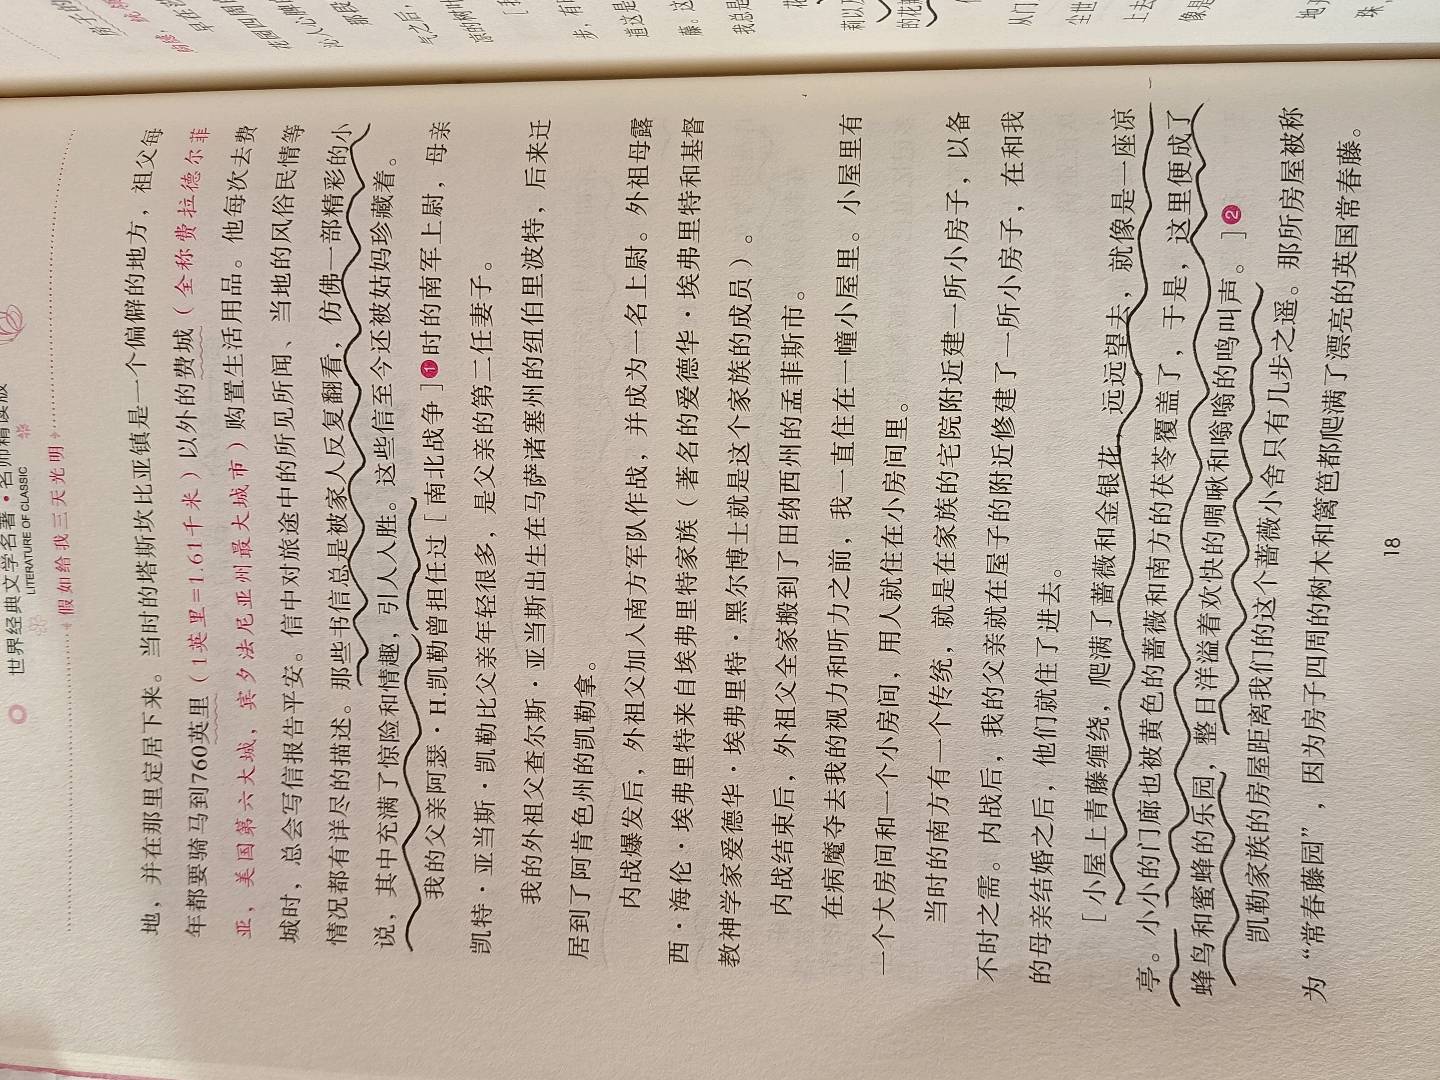 世界经典文学名著·名师精读版
LITERATURE OF CLASSIC
假如给我三天光明
地，并在那里定居下来。当时的塔斯坎比亚镇是一个偏僻的地方，祖父每
年都要骑马到760英里（1英里=1.61千米）以外的费城（全称费拉德尔菲
亚，美国第六大城，宾夕法尼亚州最大城市）购置生活用品。他每次去费
城时，总会写信报告平安。信中对旅途中的所见所闻、当地的风俗民情等
情况都有详尽的描述。那些书信总是被家人反复翻看，仿佛一部精彩的小
说，其中充满了惊险和情趣，引人入胜。这些信至今还被姑妈珍藏着。
我的父亲阿瑟·H.凯勒曾担任过［南北战争］❶时的南军上尉，母亲
凯特·亚当斯·凯勒比父亲年轻很多，是父亲的第二任妻子。
我的外祖父查尔斯·亚当斯出生在马萨诸塞州的纽伯里波特，后来迁
居到了阿肯色州的凯勒拿。
内战爆发后，外祖父加入南方军队作战，并成为一名上尉。外祖母露
西·海伦·埃弗里特来自埃弗里特家族（著名的爱德华·埃弗里特和基督
教神学家爱德华·埃弗里特·黑尔博士就是这个家族的成员）。
内战结束后，外祖父全家搬到了田纳西州的孟菲斯市。
在病魔夺去我的视力和听力之前，我一直住在一幢小屋里。小屋里有
一个大房间和一个小房间，用人就住在小房间里。
当时的南方有一个传统，就是在家族的宅院附近建一所小房子，以备
不时之需。内战后，我的父亲就在屋子的附近修建了一所小房子，在和我
的母亲结婚之后，他们就住了进去。
［小屋上青藤缠绕，爬满了蔷薇和金银花，远远望去，就像是一座凉
亭。小小的门廊也被黄色的蔷薇和南方的茯苓覆盖了，于是，这里便成了
蜂鸟和蜜蜂的乐园，整日洋溢着欢快的啁啾和嗡嗡的鸣叫声。］❷
凯勒家族的房屋距离我们的这个蔷薇小舍只有几步之遥。那所房屋被称
为“常春藤园”，因为房子四周的树木和篱笆都爬满了漂亮的英国常春藤。
18